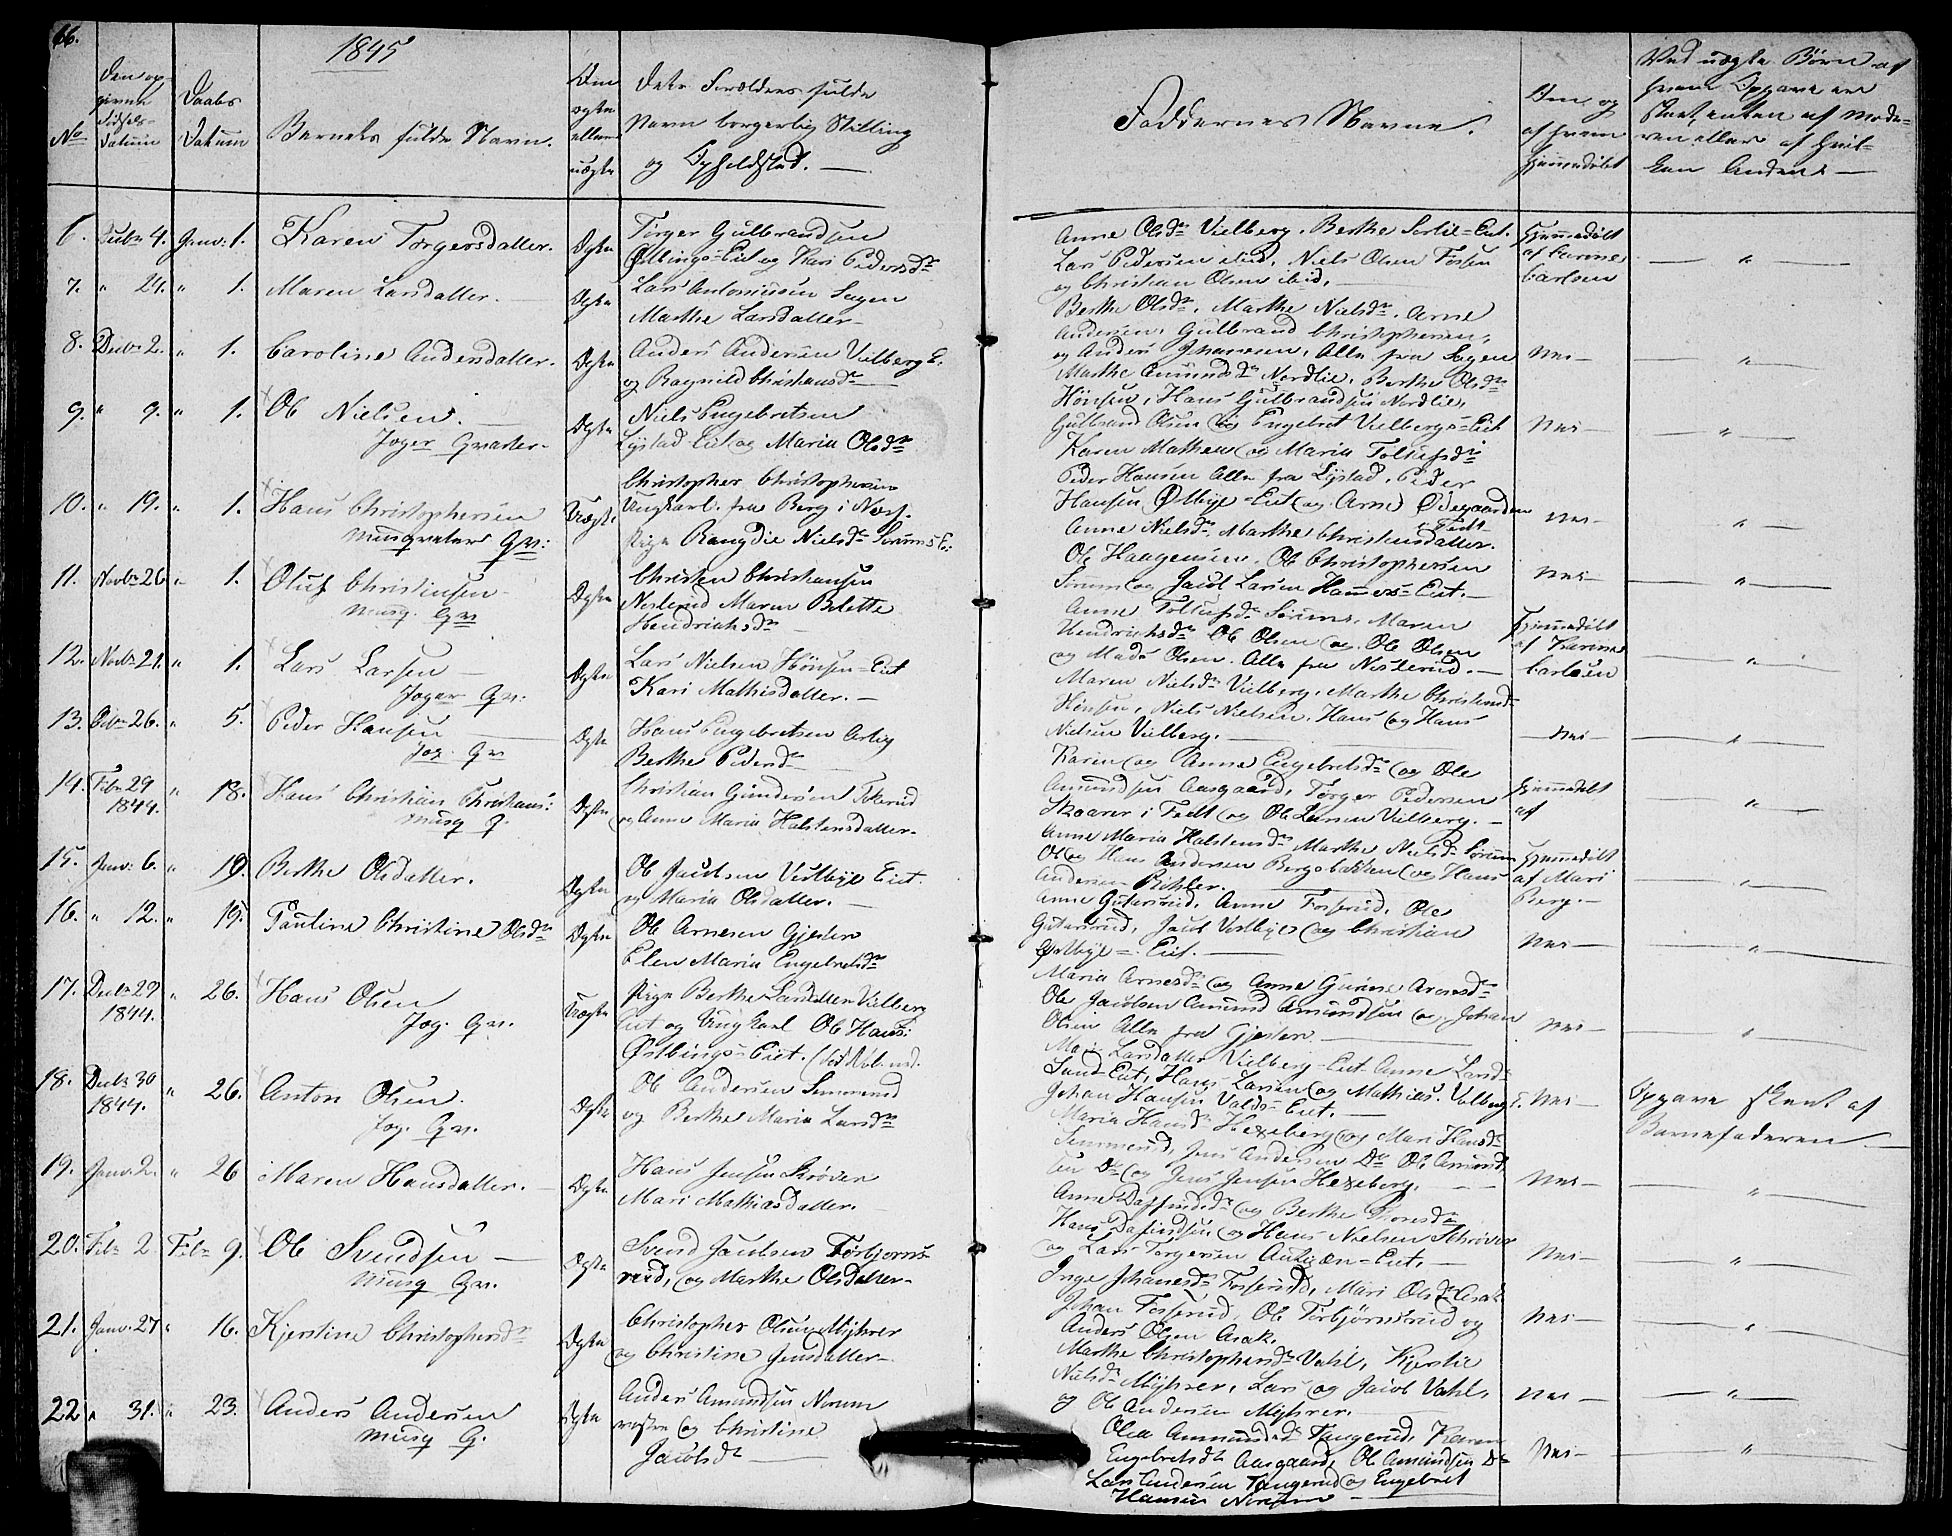 66.
1845
No
Den op-
givne
Fødsels-
Datum
Daabs
Datum
Barnets fulde Navn.
Om
ægte
eller
uægte
Dets Forældres fulde
Navn borgerlig Stilling
og Opholdsted. —
Faddernes Navne.
Om og
af hvem
hjemmedøbt
Ved uægte Børn af
hvem Opgave er
skeet, enten af Mode-
ren eller af hvil-
ken Anden? —
6. Decbr 4. Janv: 1. Karen Torgersdatter. Ægte
Torger Gulbrandsen
Østbings=Eiet og Kari Pedersdr
Anne Olsdr Vilberg, Berthe Eiet.
Lars Pedersen ibid, Niels Olsen Fossen
og Christian Olsen ibid.
Hjemmedøbt
af
Carlsen
7. " 21. " 1. Maren Larsdatter. Ægte
Lars Antonisen Sagen
Marthe Larsdatter
Berthe Olsdr. Marthe Nielsdr. Arne
Andersen, Gulbrand Christophersen,
og Anders Johannesen, Alle fra Sagen
Nei
8. Decbr 2. " 1. Caroline Andersdatter. Ægte
Anders Andersen Vilberg E.
og Ragnild Christiansdr
Marthe Amundsdr Nordlie, Berthe Olsdr
Hønsen, Hans Gulbrandsen Nordlie,
Gulbrand Olsen og Engebret Vilbergs=Eiet
Nei
9. " 9. " 1. Ole Nielsen.
Jæger Qvarter
Ægte
Niels Engebretsen
Lystad Eiet og Maria Olsdr
Karen Mathea og Maria Tollefsdr
Peder Hansen Alle fra Lystad, Peder
10. " 19. " 1. Hans Christophersen
Musqveteer Qv:
Uægte
Christopher Christophersen
Ungkarl fra Berg i Næs.
Pige Rangdie Nielsdr Sørums E:
Hansen Østbye=Eiet og Arne Ødegaarden
Anne Nielsdr, Marthe Christensdatter.
Ole Haagensen, Ole Christophersen
Nei
11. Novbr 26 " 1. Oluf Christensen
Musq. Qv
Ægte
Christen Christiansen
Nesterud Maren Belette
Hendrichsdr
Sørum og Jacob Larsen Hammers=Eiet.
Anne Tollefsdr Sørum, Maren
Hendrichsdr Ole Olsen og Ole Olsen
og Mads Olsen. Alle fra Nesterud.
Nei
12. Novbr 21. " 1. Lars Larsen
Jæger Qv:
Ægte
Lars Nielsen Hønsen=Eiet
Kari Mathisdatter.
Maren Nielsdr Vilberg, Marthe Christensdr
Hønsen, Niels Nielsen, Hans og Hans
Nielsen Vilberg.
Hjemmedøbt
af Karine
Carlsen
13. 26. " 5. Peder Hansen
Jæg. Qv
Ægte
Hans Engebretsen
Berthe Pedersdr
Karen og Anne Engebretsdr og Ole
Amundsen Aasgaard, Torger Pedersen
Nei
14. Febr 29
1844.
" 18. Hans Christian Christians:
Musq Q.
Ægte
Christian Gundersen
og Anne Maria Halstensdatter.
Skoarer i Fedt og Ole Larsen Vilberg.
Anne Maria Halstensdr Marthe Nielsdr Sørum
Hjemmedøbt
af
15. Janv: 6. " 19. Berthe Olsdatter. Ægte
Ole Jacobsen Vestbye Eiet.
og Maria Olsdatter.
Ole og Hans Andersen Bergsbakken og Hans
Andersen
Hjemmedøbt
af Mari
Berg.
16. " 12. " 19. Pauline Christine Olsdr Ægte
Ole Arnesen Gjesten
Elen Maria Engebretsdr
Anne Gutersrud, Anne Fosserud, Ole
Gutersrud, Jacob Vestbye og Christian
Østbye = Eiet.
Nei
17. Decbr 29
1844.
" 26. Hans Olsen
Jæg. Qv.
Uægte
Pige Berthe Larsdatter Vilberg
Eiet og Ungkarl Ole Hans:
Østbings=Eiet.
Maria Arnesdr og Anne Gurine Arnesdr
Ole Jacobsen Amund Amundsen og Johan
Olsen Alle fra Gjesten.
Nei
18. Decbr 30
1844.
" 26. Anton Olsen.
Jæg. Qv.
Ægte
Ole Andersen Simmerud
og Berthe Maria Larsdr
Mari Larsdatter Vilberg=Eiet Anne Larsdr
Lund=Eiet, Hans Larsen og Mathias Vilberg E.
Johan Hansen Valds=Eiet.
Nei
Opgave skeet af
Barnefaderen
19. Janv: 2. " 26 Maren Hansdatter. Ægte
Hans Jensen Skrøver
Mari Mathiasdatter.
Maria Hansdr Hexeberg og Mari Hansdr
Simmerud, Jens Andersen Do Ole Amund-
sen Do og Jens Jensen Hexeberg.
Nei
20. Febr 2. Febr 9. Ole Svendsen
Musq Qv.
Ægte
Svend Jacobsen Torbjørns-
rud, og Marthe Olsdatter
Anne Daffindsdr og Berthe Thoresdr
Hans Dafindsen og Hans Nielsen Schrøver
og Lars Torgersen Eiet.
Nei
21. Janv. 27 " 16. Kjerstine Christophersdr Ægte
Christopher Olsen Myhrer
og Christine Jensdatter
Inge Johanesdr Fosserud, Mari Olsdr Asak
Johan Fosserud, Ole Torbjørnsrud og
Anders Olsen Asak.
Nei
22 " 31. " 23. Anders Andersen
Musq Q.
Ægte
Anders Amundsen Norum
vestre og Christine
Jacobsdr
Marthe Christophersdr Vahl, Kjerstie
Nielsdr Myhrer, Lars og Jacob Vahl,
og Ole Andersen Myhrer.
Nei
Olea Amundsdr Tangerud, Karen
Engebretsdr Aasgaard, Ole Amundsen Do
Lars Andersen Tangerud og Engebret
Hansen Norum
Nei